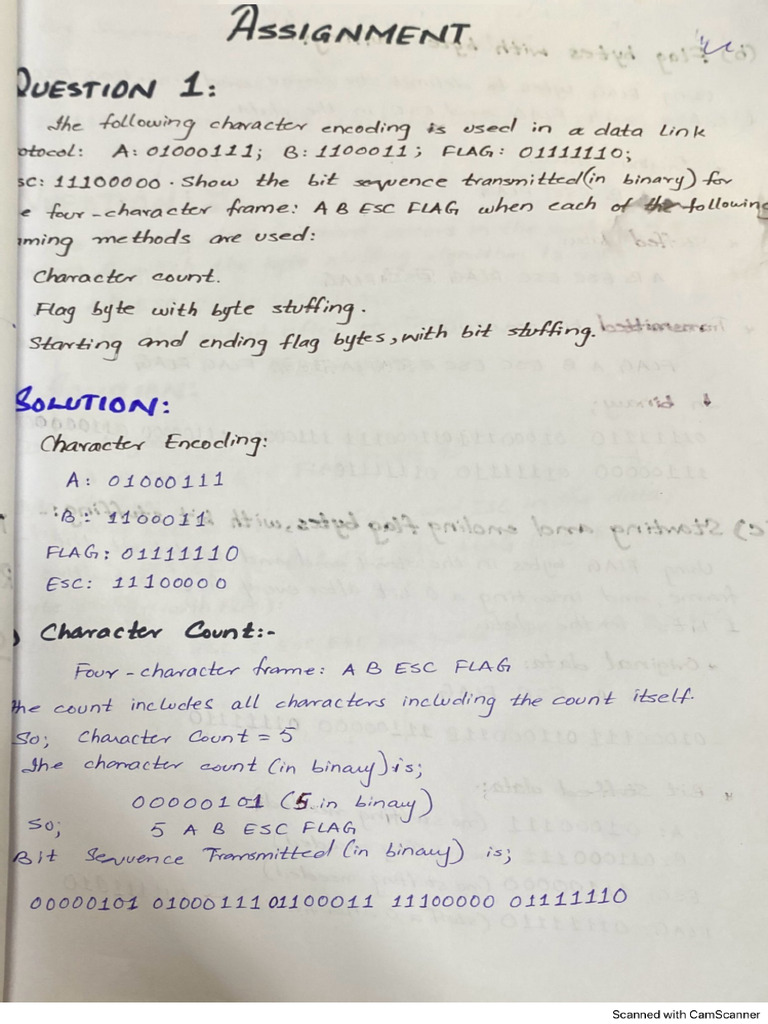 ASSIGNMENT
QUESTION 1:
The following character encoding is used in a data link
otocol: A: 01000111; B: 1100011; FLAG: 01111110;
sc: 11100000. Show the bit sequence transmitted (in binary) for
e four-character frame: A B ESC FLAG when each of the following
ming methods are used:
Character count.
Flag byte with byte stuffing.
Starting and ending flag bytes, with bit stuffing.
SOLUTION:
Character Encoding:
A: 01000111
B: 1100011
FLAG: 01111110
ESC: 11100000
) Character Count:-
Four-character frame: A B ESC FLAG
the count includes all characters including the count itself.
So; Character Count = 5
The character count (in binary) is;
00000101 (5 in binary)
So; 5 A B ESC FLAG
Bit Sequence Transmitted (in binary) is;
00000101 01000111 01100011 11100000 01111110
Scanned with CamScanner